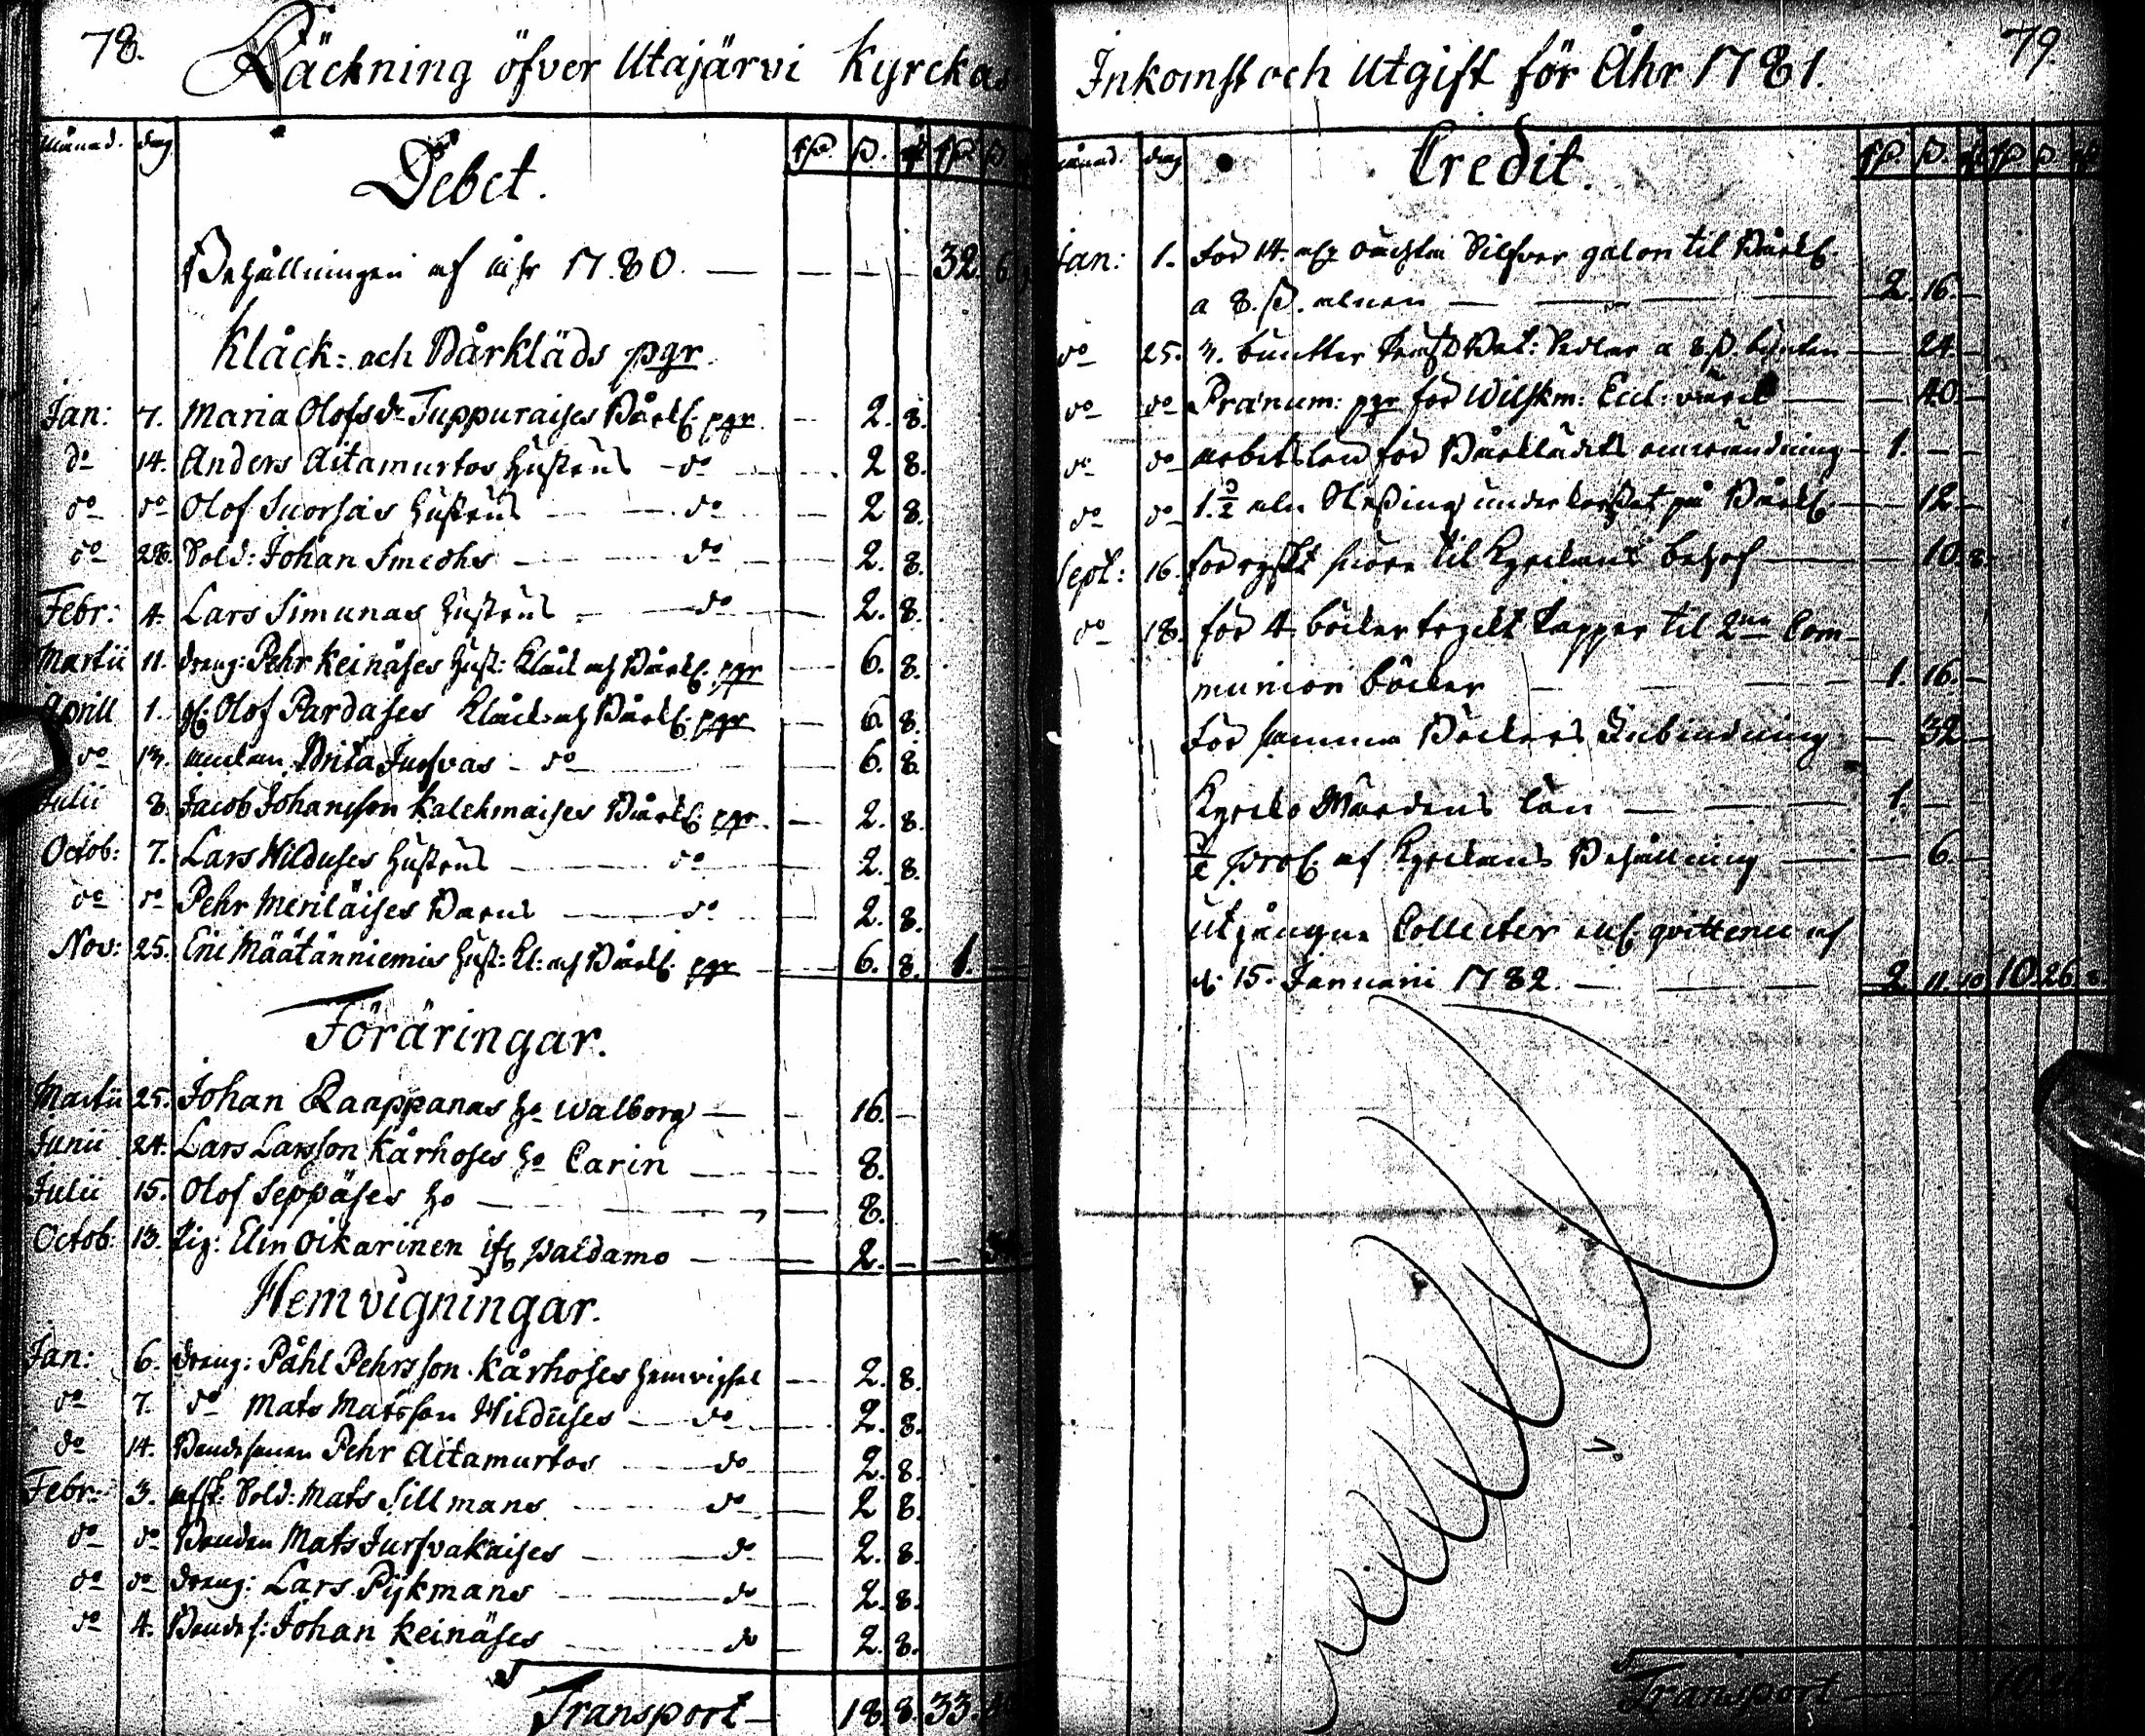 78.
Räckning öfver Utajärvi Kyrckas
månad. dag. Rdr ß. rst Rdr ß
Debet.
Behållningen af åhr 1780. — — — — 32. 6
Klåck- och Bårkläds pgr.
Jan: 7. Maria Olofsdr Tuppuraises Bårkl. pgr. — 2. 8.
do 14. Anders Aitamurtos hustrus — do — 2 8.
do do Olof Suorsas hustrus — do — 2 8.
do 28. Sold: Johan Smedhs — do — 2. 8.
Febr: 4. Lars Simunas hustrus — do — 2. 8.
Martii 11. dräng: Pehr Keinäses hust: Klåck och Bårkl. pgr — 6. 8.
Aprill 1. Olof Pardases Klåck och Bårkl. pgr — 6. 8.
do 13. änkan Brita Jurfvas — do — 6. 8.
Julii 8. Jacob Johansson Kalehmaises Bårkl. pgr. — 2. 8.
Octob: 7. Lars Hilduses hustrus — do — 2. 8.
do do Pehr Meriläises Barns — do — 2. 8.
Nov: 25. Eric Määtänniemis hust: Kl: och Bårkl. pgr — 6. 8. 1.
Föräringar.
Martii 25. Johan Raappanas ho Walborg — 16. —
Junii 24. Lars Larsson Kårhoses ho Carin — 8.
Julii 15. Olof Seppäses ho — 8.
Octob: 13. Pig: Elin Oikarinen ifr Paldamo — 2. — —
Hemvigningar.
Jan: 6. dräng: Påhl Pehrsson Kårhoses hemvigsel — 2. 8.
do 7. do Mats Matsson Hilduses — do — 2. 8.
do 14. Bondesonen Pehr Aitamurtos — do — 2. 8.
Febr: 3. afsk: Sold: Mats Sillmans — do — 2 8.
do do Bonden Mats Jurfvakaises — do — 2. 8.
do do dräng: Lars Pijkmans — do — 2. 8.
do 4. Bondes: Johan Keinäses — do — 2. 8.
Transport — 18. 8. 33.
79.
Inkomst och Utgift för Åhr 1781.
månad. dag Rdr ß. rst Rdr ß rst
Credit.
Jan: 1. För 14. alr oächta Silfver galon til Bårkl.
a 8. ß. alnen — 2. 16. —
do 25. 3. buntter a 8. ß. bunten — 24. —
do do Pränum: pgr för Wilskm: Eccl: värck — 40. —
do do arbetslön för Bårklädets omvändning — 1. — —
do do 1. ½ aln under korset på Bårkl. — 12 —
Sept: 16. för til Kyrckans behof — 10. 8.
do 18. för 4 böcker Papper til 2ne Com-
munion böcker — 1. 16. —
För samma Böckers Inbindning — 32 —
Kyrcko Wärdens lön — 1. — —
½ proC. af Kyrckans Behållning — 6. —
Utgångne Collecter enl. qvittence af
d: 15. Januarii 1782. — 2. 11. 10. 26. 8.
Transport —